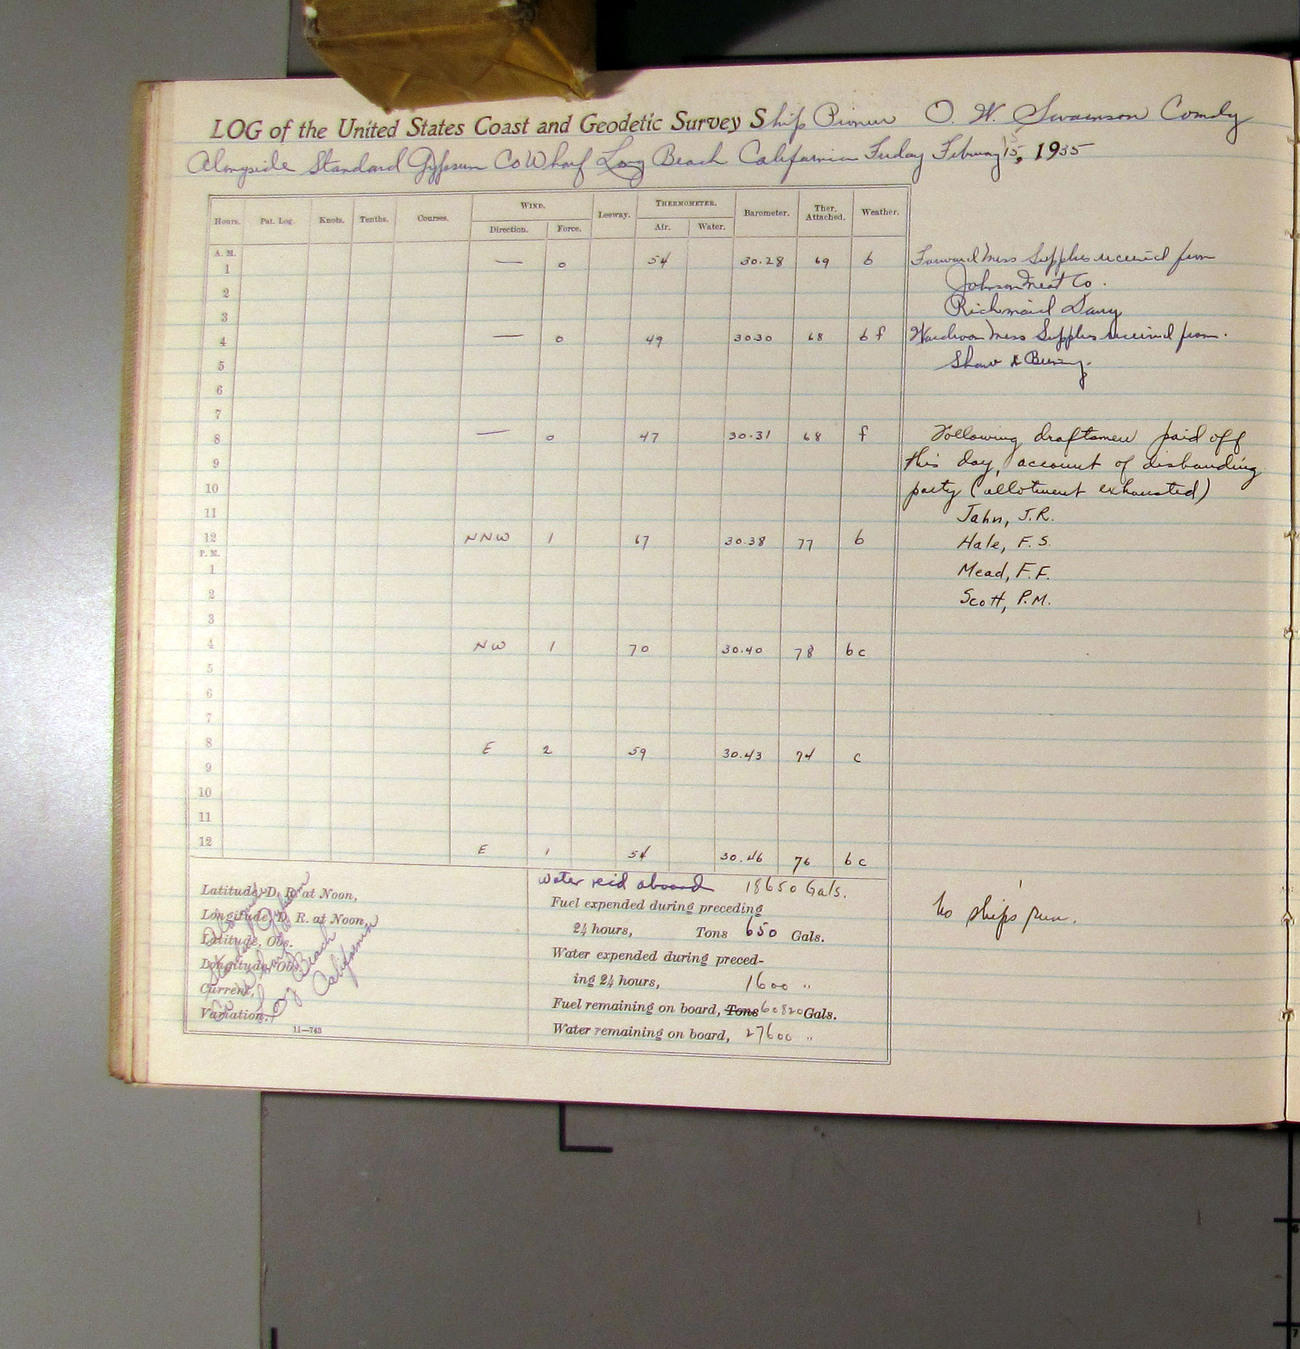 LOG of the United States Coast and Geodetic Survey Ship Pioneer O. W. Swainson Comdg
Alongside Standard Gypsum Co Wharf Long Beach California Friday February 15, 1935
Hours. Pat. Log. Knots. Tenths. Courses. WIND. Leeway. THERMOMETER. Barometer. Ther. Attached. Weather.
Direction. Force. Air. Water.
A. M.
1 — 0 54 30.28 69 b Forward Mess Supplies received from
2 Johnson Meat Co.
3 Richmaid Dairy
4 — 0 49 30.30 68 b f Wardroom Mess Supplies received from.
5 Shaw &
6
7
8 — 0 47 30.31 68 f Following draftsmen paid off
9 this day, account of disbanding
10 party (allotment exhausted)
11 Jahn, J.R.
12 NNW 1 67 30.38 77 b Hale, F.S.
P. M.
1 Mead, F.F.
2 Scott, P.M.
3
4 NW 1 70 30.40 78 b c
5
6
7
8 E 2 59 30.43 74 c
9
10
11
12 E 1 54 30.46 76 b c
Water rec'd aboard 18650 Gals.
Latitude D. R. at Noon,
Fuel expended during preceding
Longitude D. R. at Noon,
24 hours, Tons 650 Gals.
No ship's run.
Latitude, Obs.
Water expended during preced-
Longitude, Obs.
ing 24 hours, 1600 "
Current,
Fuel remaining on board, Tons 60820 Gals.
Variation,
Water remaining on board, 27600 "
Long Beach
California
11—743